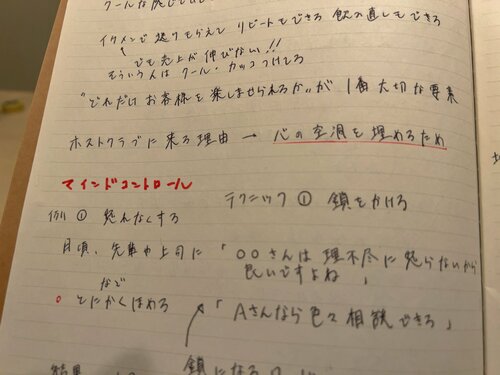 イケメンで盛りもらえて リピートもできる 飲み直しもできる
でも売上が伸びない!!
そういう人は クール・カッコつけてる
"どれだけ お客様を楽しませられるか" が 1番大切な要素
ホストクラブに来る理由 → 心の空洞を埋めるため
マインドコントロール
テクニック ① 鎖をかける
例 ① 怒れなくする
日頃、先輩や上司に 「〇〇さんは 理不尽に怒らないから
良いですよね」
など
とにかくほめる
「Aさんなら色々相談できる」
結果
鎖になる